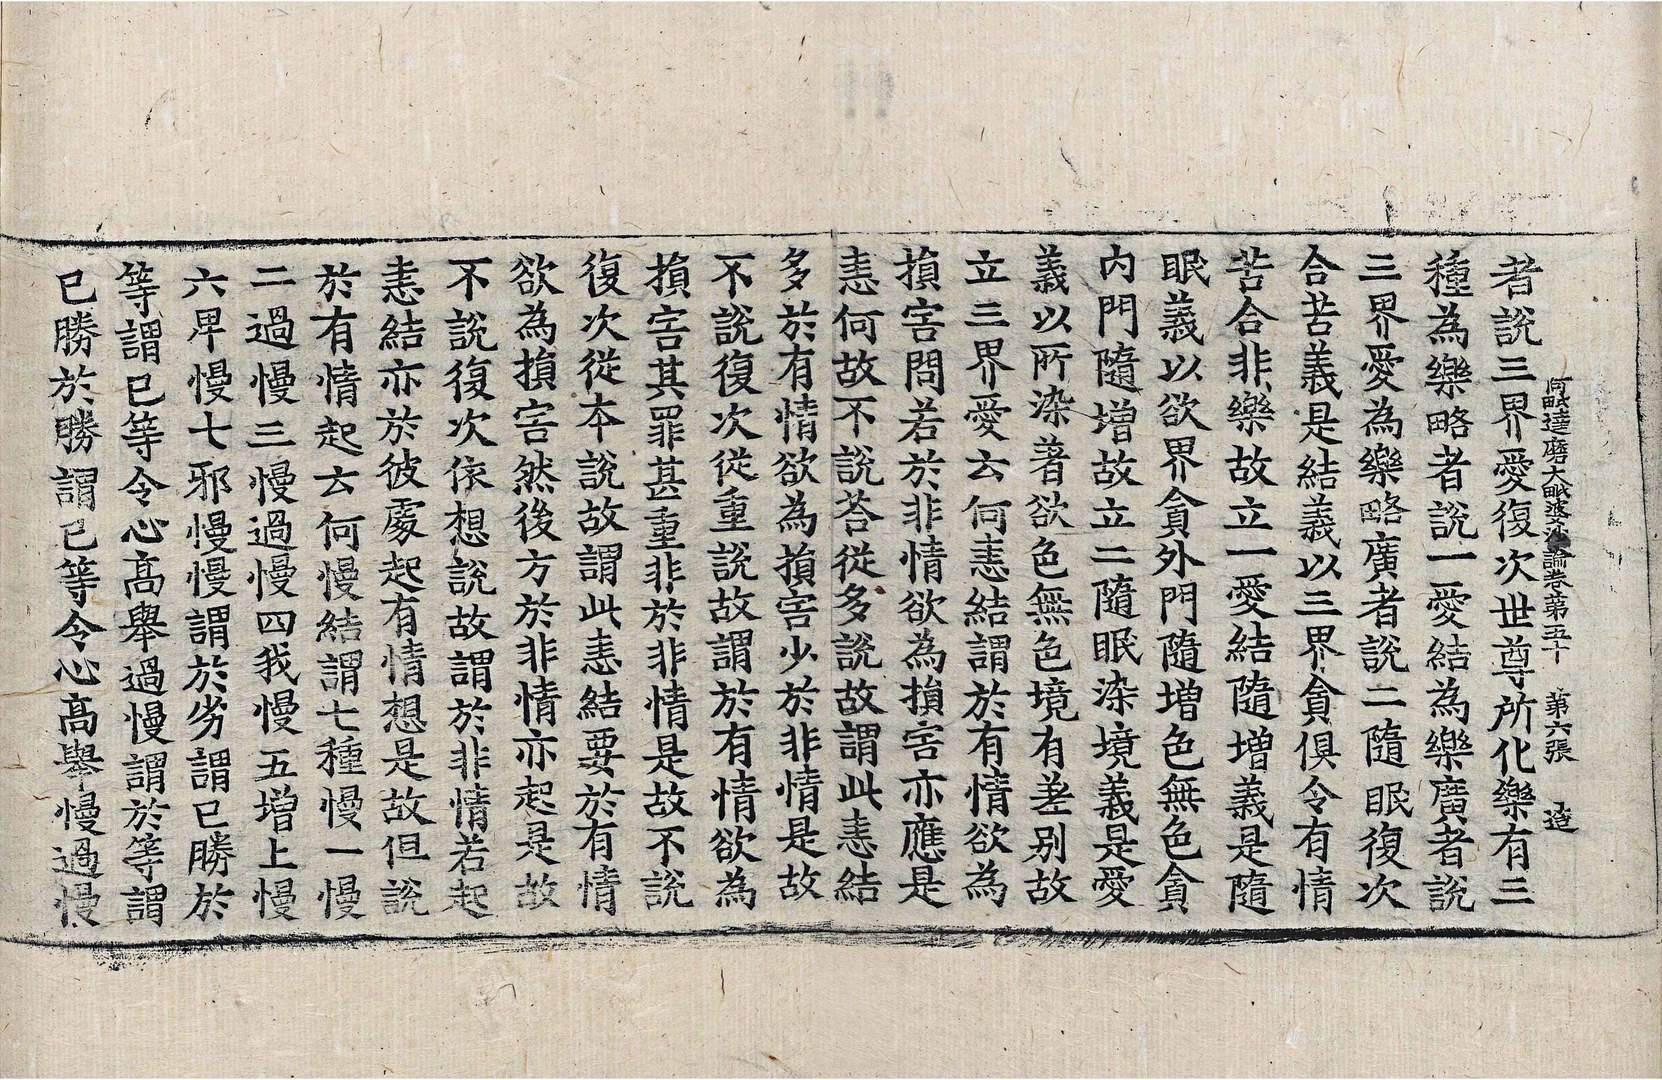 阿毗達磨大毗婆沙論卷第五十　第六張　造
者說三界愛復次世尊所化樂有三
種為樂略者說一愛結為樂廣者說
三界愛為樂略廣者說二隨眠復次
合苦義是結義以三界貪俱令有情
苦合非樂故立一愛結隨增義是隨
眠義以欲界貪外門隨增色無色貪
內門隨增故立二隨眠染境義是愛
義以所染著欲色無色境有差別故
立三界愛云何恚結謂於有情欲為
損害問若於非情欲為損害亦應是
恚何故不說荅從多說故謂此恚結
多於有情欲為損害少於非情是故
不說復次從重說故謂於有情欲為
損害其罪甚重非於非情是故不說
復次從本說故謂此恚結要於有情
欲為損害然後方於非情亦起是故
不說復次依想說故謂於非情若起
恚結亦於彼處起有情想是故但說
於有情起云何慢結謂七種慢一慢
二過慢三慢過慢四我慢五增上慢
六卑慢七邪慢慢謂於劣謂已勝於
等謂已等令心高舉過慢謂於等謂
已勝於勝謂已等令心高舉慢過慢